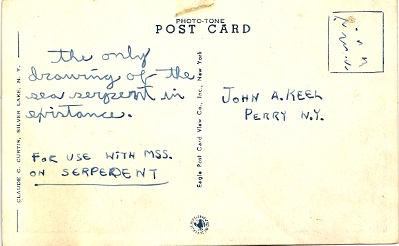 PHOTO-TONE
POST CARD
the only
drawing of the
sea serpent in
existance.
FOR USE WITH MSS.
ON SERPEDENT
JOHN A. KEEL
PERRY N.Y.
CLAUDE C. CURTIN, SILVER LAKE, N. Y.
Eagle Post Card View Co., Inc., New York